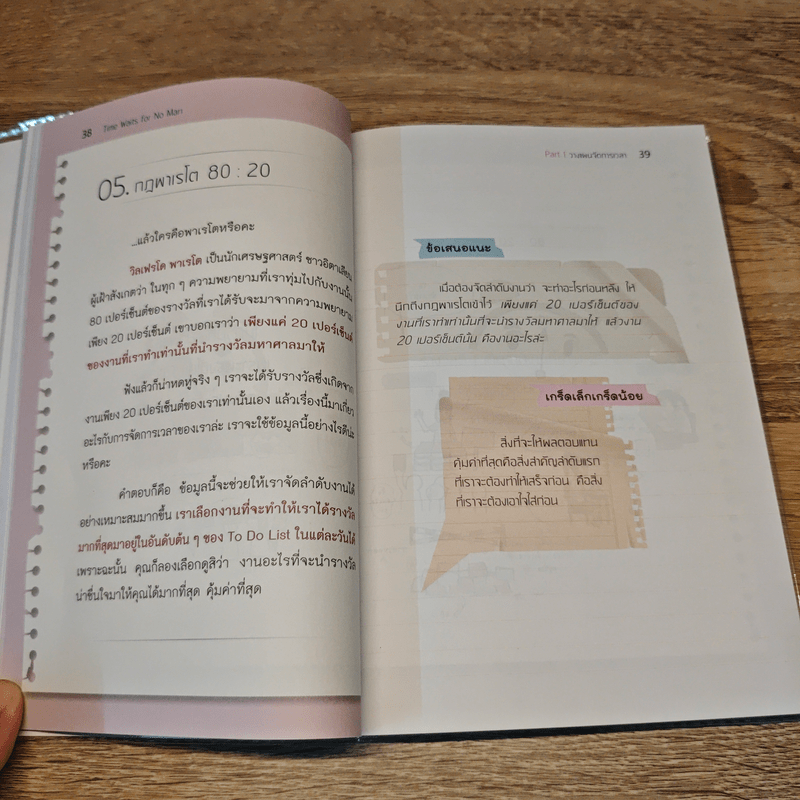 38 Time Waits for No Man
05. กฎพาเรโต 80 : 20
...แล้วใครคือพาเรโตหรือคะ
วิลเฟรโด พาเรโต เป็นนักเศรษฐศาสตร์ ชาวอิตาเลียน
ผู้เฝ้าสังเกตว่า ในทุก ๆ ความพยายามที่เราทุ่มไปกับงานนั้น
80 เปอร์เซ็นต์ของรางวัลที่เราได้รับจะมาจากความพยายาม
เพียง 20 เปอร์เซ็นต์ เขาบอกเราว่า เพียงแค่ 20 เปอร์เซ็นต์
ของงานที่เราทำเท่านั้นที่นำรางวัลมหาศาลมาให้
ฟังแล้วก็น่าหดหู่จริง ๆ เราจะได้รับรางวัลซึ่งเกิดจาก
งานเพียง 20 เปอร์เซ็นต์ของเราเท่านั้นเอง แล้วเรื่องนี้มาเกี่ยว
อะไรกับการจัดการเวลาของเราล่ะ เราจะใช้ข้อมูลนี้อย่างไรดีน่ะ
หรือคะ
คำตอบก็คือ ข้อมูลนี้จะช่วยให้เราจัดลำดับงานได้
อย่างเหมาะสมมากขึ้น เราเลือกงานที่จะทำให้เราได้รางวัล
มากที่สุดมาอยู่ในอันดับต้น ๆ ของ To Do List ในแต่ละวันได้
เพราะฉะนั้น คุณก็ลองเลือกดูสิว่า งานอะไรที่จะนำรางวัล
น่าชื่นใจมาให้คุณได้มากที่สุด คุ้มค่าที่สุด
Part 1 วางแผนจัดการเวลา 39
ข้อเสนอแนะ
เมื่อต้องจัดลำดับงานว่า จะทำอะไรก่อนหลัง ให้
นึกถึงกฎพาเรโตเข้าไว้ เพียงแค่ 20 เปอร์เซ็นต์ของ
งานที่เราทำเท่านั้นที่จะนำรางวัลมหาศาลมาให้ แล้วงาน
20 เปอร์เซ็นต์นั้น คืองานอะไรล่ะ
เกร็ดเล็กเกร็ดน้อย
สิ่งที่จะให้ผลตอบแทน
คุ้มค่าที่สุดคือสิ่งสำคัญลำดับแรก
ที่เราจะต้องทำให้เสร็จก่อน คือสิ่ง
ที่เราจะต้องเอาใจใส่ก่อน